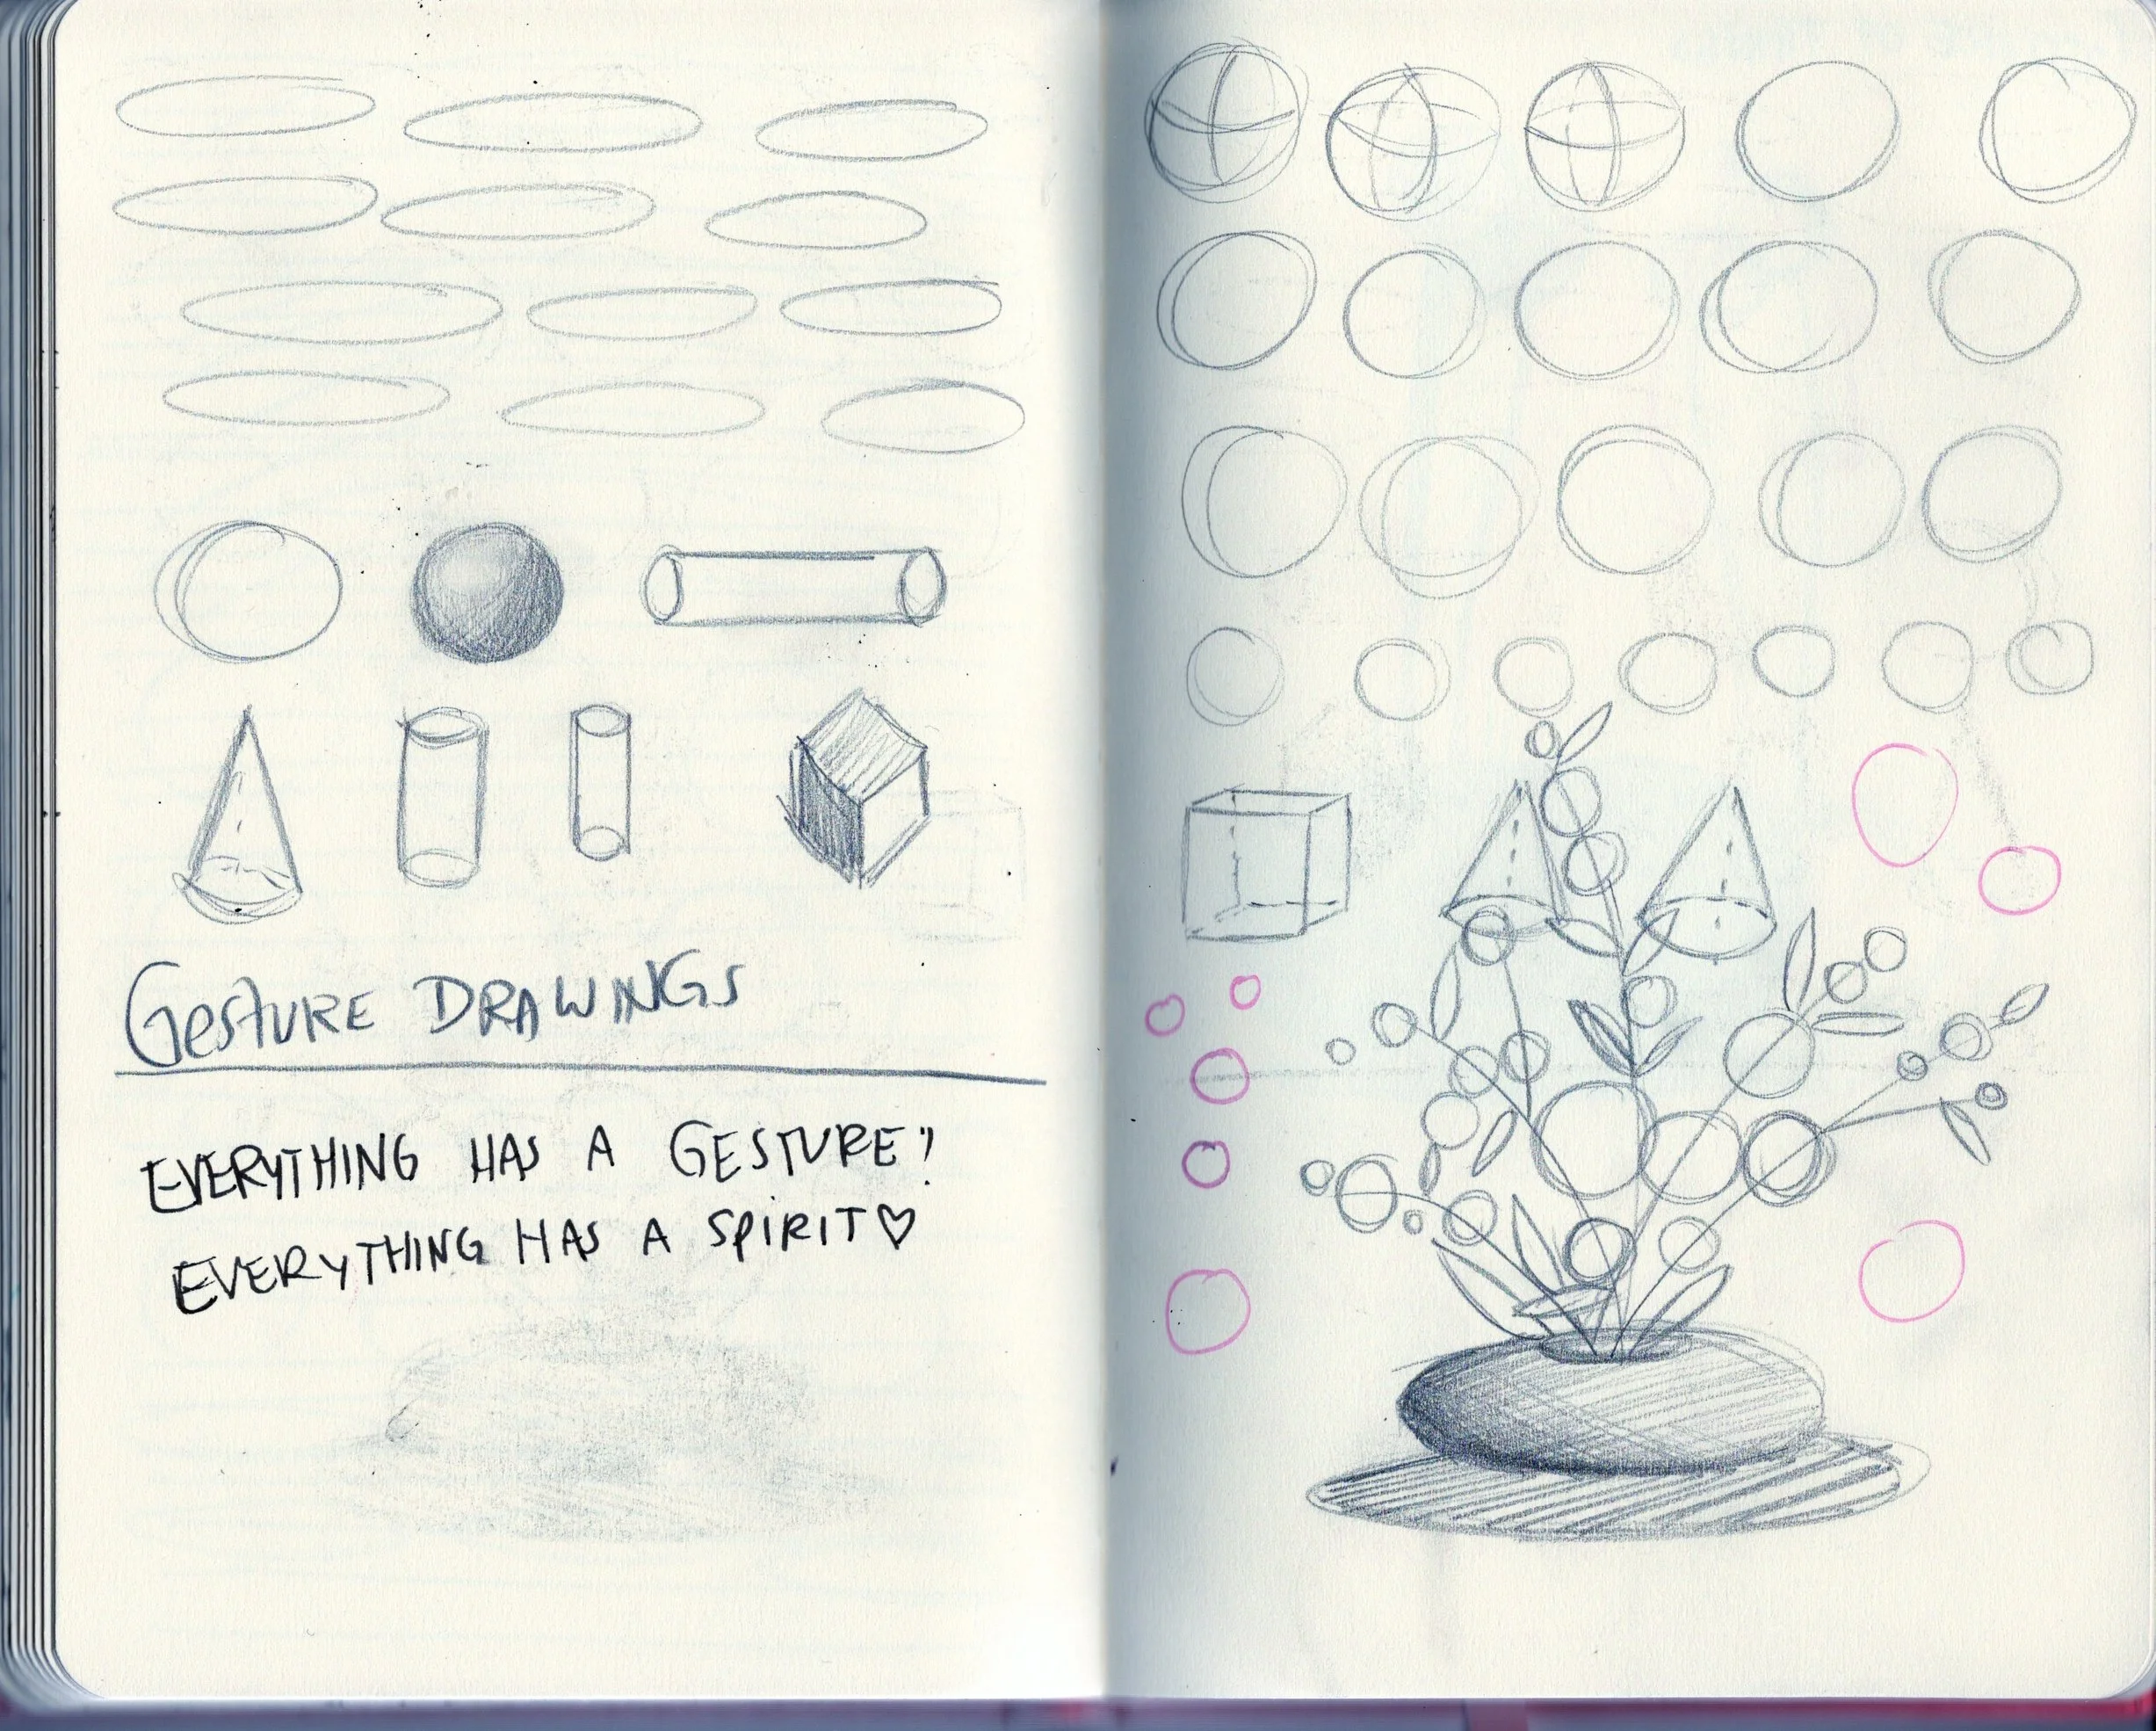 GESTURE DRAWINGS
EVERYTHING HAS A GESTURE!
EVERYTHING HAS A SPIRIT♡